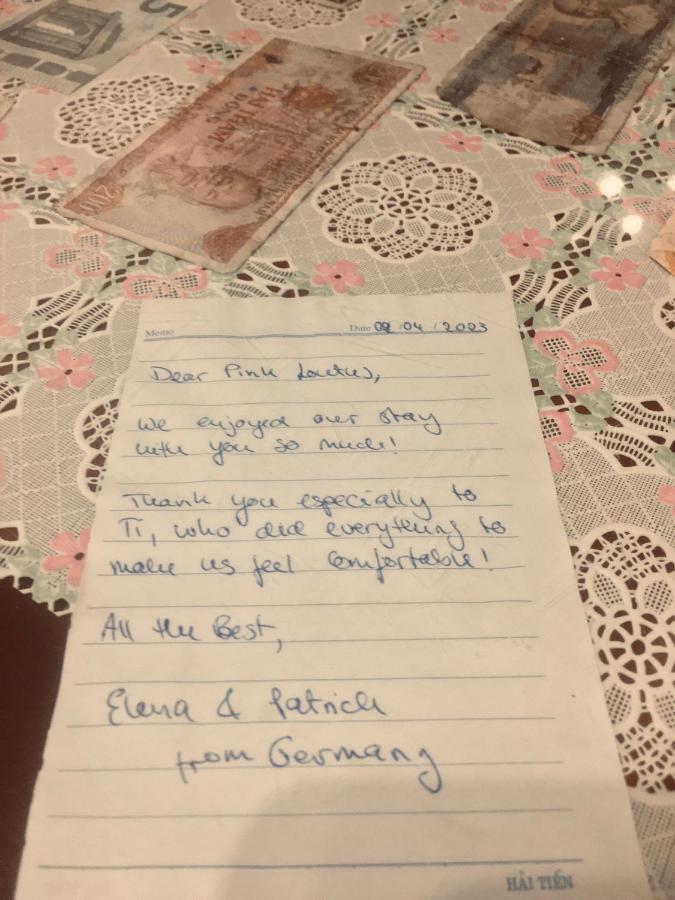 5
HAI TRĂM
ĐỒNG
200
Memo
Date 02 / 04 / 2023
Dear Pink Lotus,
we enjoyed our stay
with you so much!
Thank you especially to
Ti, who did everything to
make us feel comfortable!
All the Best,
Elena & Patrick
from Germany
HẢI TIẾN